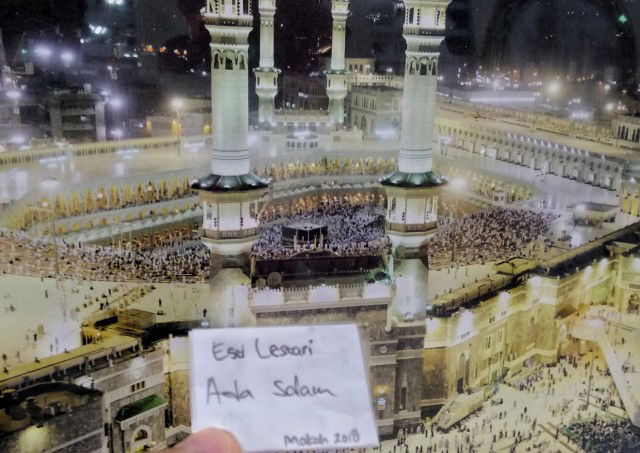 Esti Lestari
Ada Salam
Makah 2018